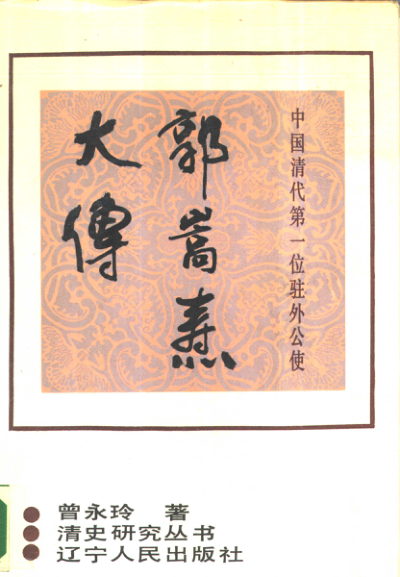 中国清代第一位驻外公使
郭嵩焘
大傳
曾永玲 著
清史研究丛书
辽宁人民出版社